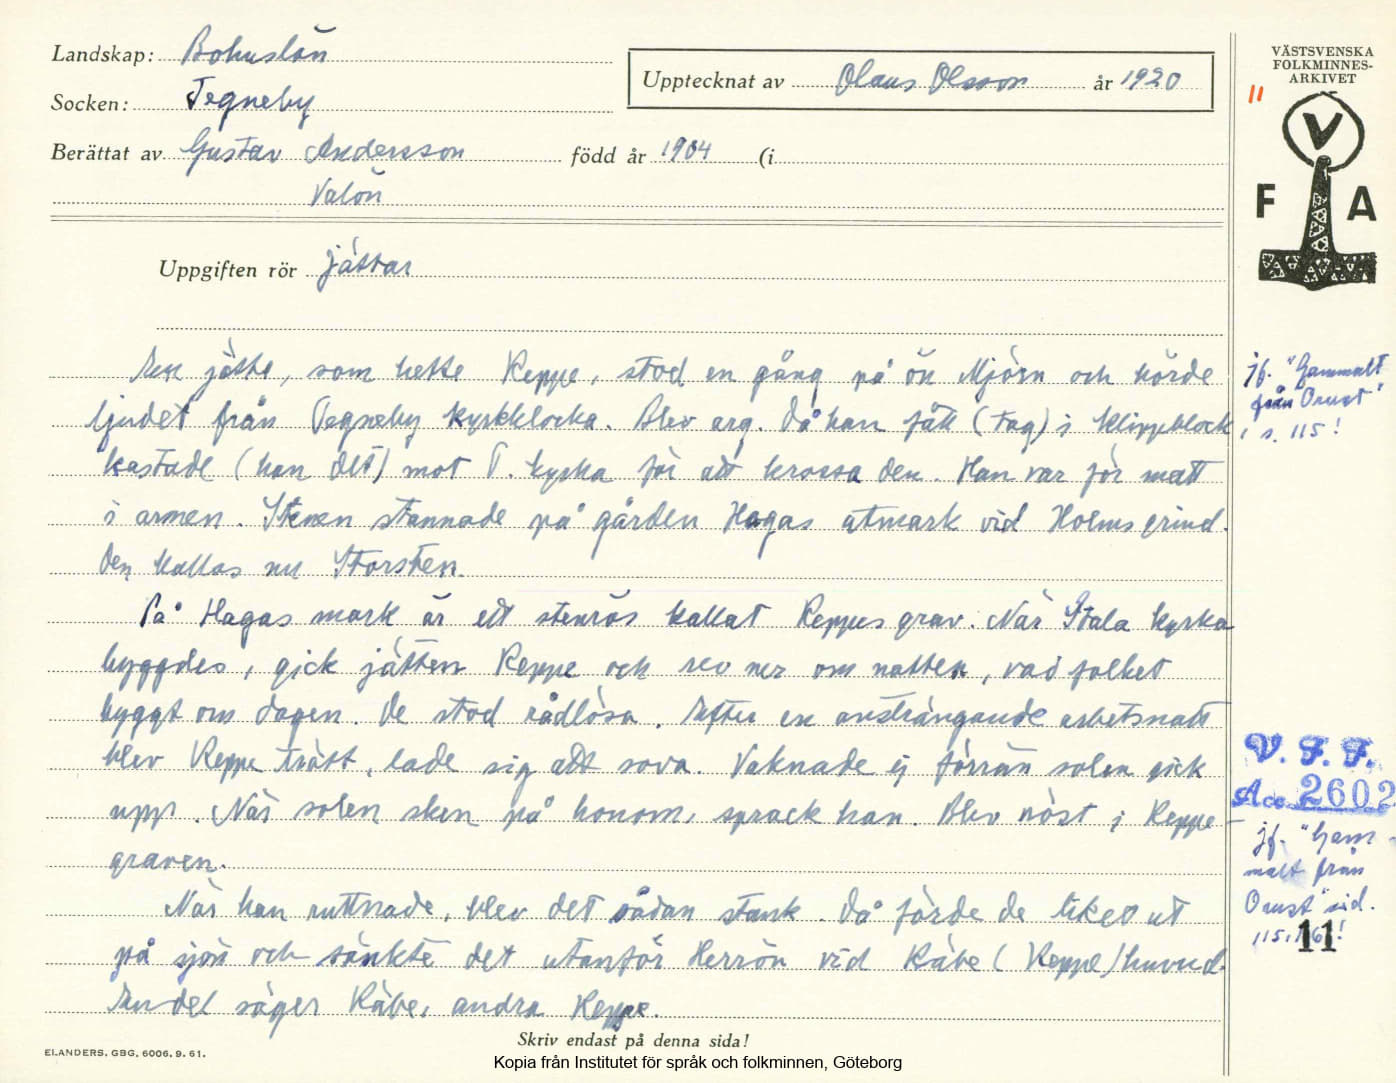 Landskap: Bohuslän
Socken: Tegneby
Upptecknat av Olaus Olsson år 1920
Berättat av Gustav Andersson född år 1904 (i
Valön
Uppgiften rör jättar
VÄSTSVENSKA
FOLKMINNES-
ARKIVET
11
V
F A
En jätte, som hette Keppe, stod en gång på ön Mjörn och hörde
ljudet från Tegneby kyrkklocka. Blev arg. Då han fått (tag) i klippblock
kastade (han det) mot T. kyrka för att krossa den. Han var för matt
i armen. Stenen stannade på gården Hagas utmark vid Holms grind.
Den kallas nu Storsten.
På Hagas mark är ett stenrös kallat Keppes grav. När Stala kyrka
byggdes, gick jätten Keppe och rev ner om natten, vad folket
byggt om dagen. De stod rådlösa. Efter en ansträngande arbetsnatt
blev Keppe trött, lade sig att sova. Vaknade ej förrän solen gick
upp. När solen sken på honom, sprack han. Blev röst i Keppe-
graven.
När han ruttnade, blev det sådan stank. Då förde de liket ut
på sjön och sänkte det utanför Herrön vid Käbe (Keppe) huvud.
En del säger Käbe, andra Keppe.
jf. "Gammalt
från Orust"
s. 115!
V. F. F.
Acc. 2602
jf. "Gam-
malt från
Orust" sid.
115, 116!
11
Skriv endast på denna sida!
ELANDERS, GBG, 6006. 9. 61.
Kopia från Institutet för språk och folkminnen, Göteborg